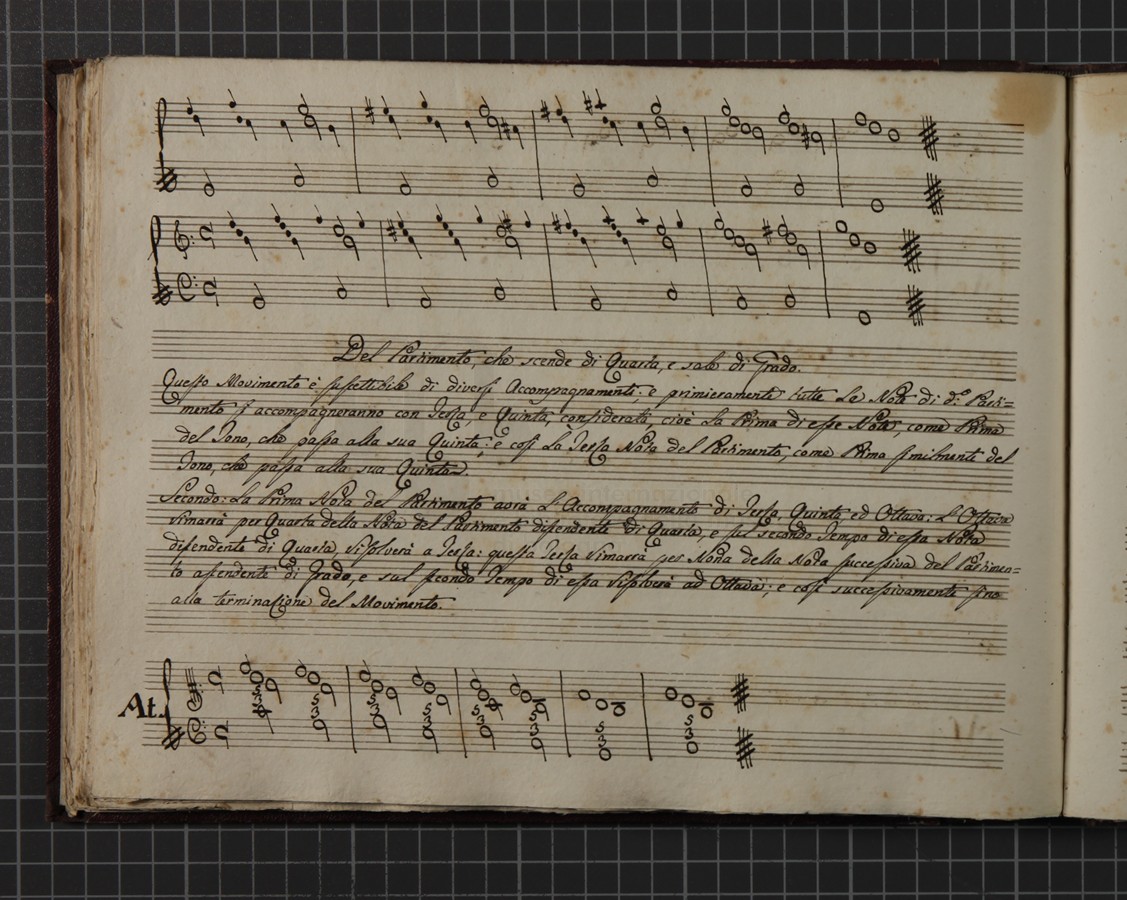 Del Partimento, che scende di Quarta, e sale di Grado.
Questo Movimento è suscettibile di diversi Accompagnamenti; e primieramente tutte le Note di d.º Parti=
mento si accompagneranno con Terza, e Quinta, considerata, cioè la Prima di esse Note, come Prima
del Tono, che passa alla sua Quinta; e così la Terza Nota del Partimento, come Prima similmente del
Tono, che passa alla sua Quinta.
Secondo: La Prima Nota del Partimento avrà l'Accompagnamento di Terza, Quinta, ed Ottava: L'Ottava
rimarrà per Quarta della Nota del Partimento discendente di Quarta, e sul secondo Tempo di essa Nota
discendente di Quarta, risolverà a Terza: questa Terza rimarrà per Nona della Nota successiva del Partimen=
to ascendente di Grado, e sul secondo Tempo di essa risolverà ad Ottava; e così successivamente sino
alla terminazione del Movimento.
At.
5 5 5 5 5 5 5 5
3 3 3 3 3 3 3 3